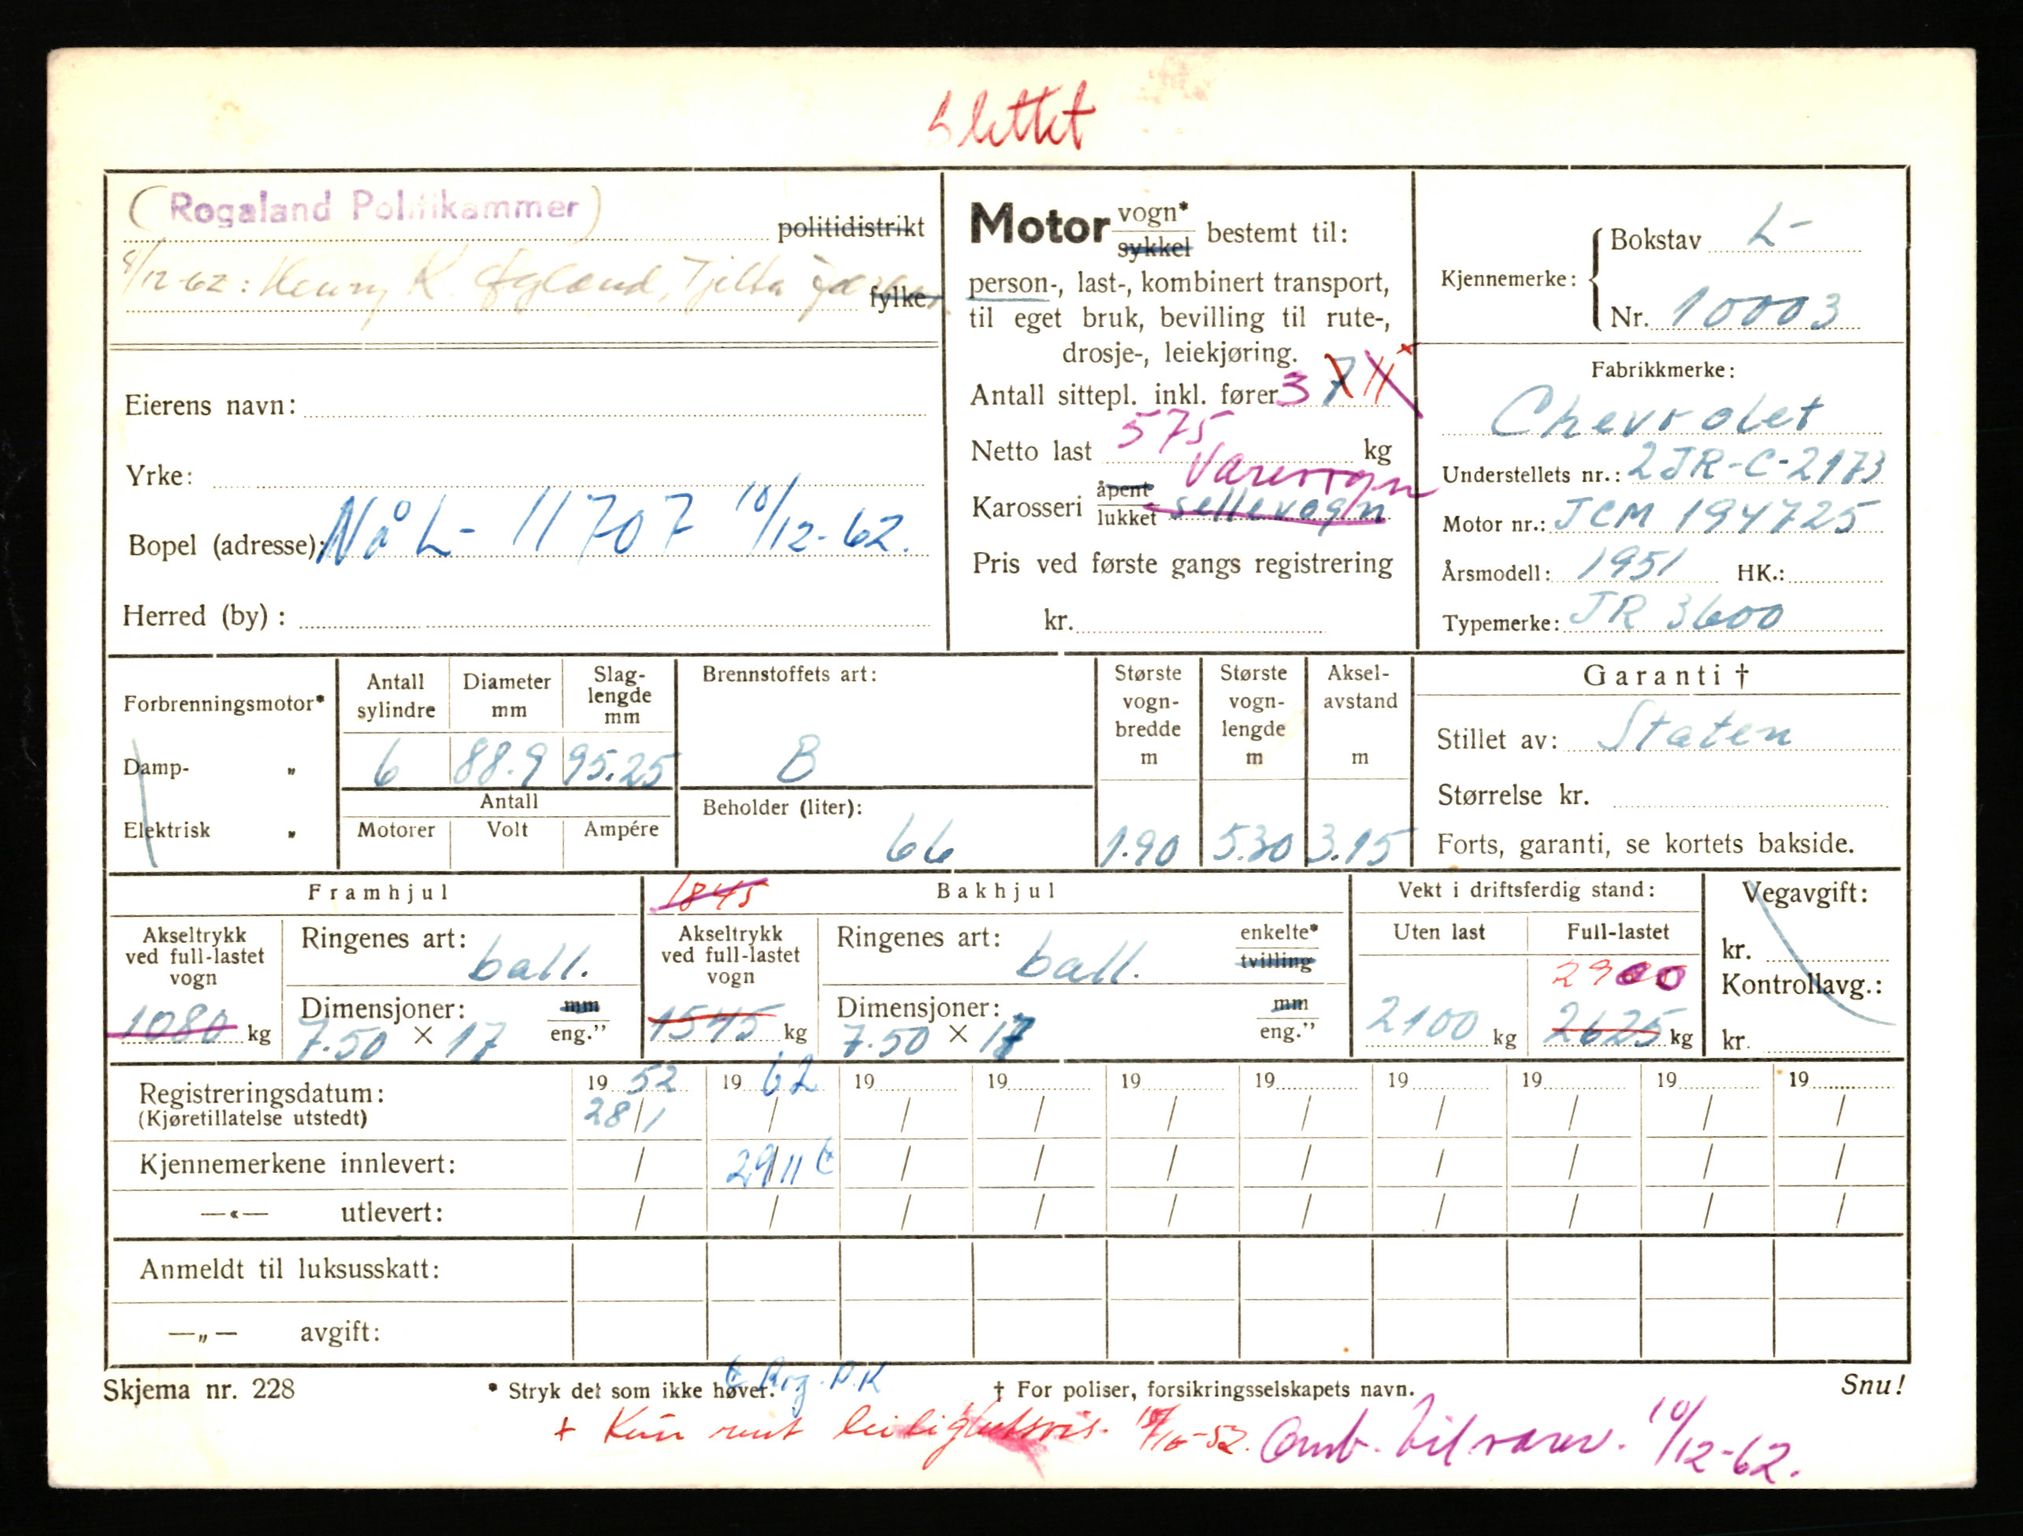 Slettet
(Rogaland Politikammer) politidistrikt
8/12-62: Henry K. Øgland, Tjelta fylke
Eierens navn:
Yrke:
Bopel (adresse): Nå L- 11707 10/12-62.
Herred (by) :
Motor vogn* sykkel bestemt til:
person-, last-, kombinert transport,
til eget bruk, bevilling til rute-,
drosje-, leiekjøring.
Antall sittepl. inkl. fører 3 7 11 x
Netto last 575 kg
Varevogn
Karosseri åpent lukket sellevogn
Pris ved første gangs registrering
kr.
Kjennemerke: Bokstav L-
Nr. 10003
Fabrikkmerke:
Chevrolet
Understellets nr.: 2JR-C-2173
Motor nr.: JCM 194725
Årsmodell: 1951 HK.:
Typemerke: JR 3600
Forbrenningsmotor*
Damp- „
Elektrisk „
Antall sylindre 6
Diameter mm 88.9
Slag-lengde mm 95.25
Antall
Motorer Volt Ampére
Brennstoffets art:
B
Beholder (liter):
66
Største vogn-bredde m 1.90
Største vogn-lengde m 5.30
Aksel-avstand m 3.15
Garanti †
Stillet av: Staten
Størrelse kr.
Forts, garanti, se kortets bakside.
Framhjul
Akseltrykk ved full-lastet vogn
1080 kg
Ringenes art: ball.
Dimensjoner: mm
7.50 × 17 eng.”
1845 Bakhjul
Akseltrykk ved full-lastet vogn
1545 kg
Ringenes art: ball. enkelte* tvilling
Dimensjoner: mm
7.50 × 17 eng.”
Vekt i driftsferdig stand:
Uten last Full-lastet
2900
2100 kg 2625 kg
Vegavgift:
kr.
Kontrollavg.:
kr.
Registreringsdatum: 19 52 19 62 19 19 19 19 19 19 19 19
(Kjøretillatelse utstedt) 28/1 / / / / / / / / /
Kjennemerkene innlevert: / 29/11 ¢ / / / / / / / /
—«— utlevert: / / / / / / / / / /
Anmeldt til luksusskatt:
—„— avgift:
¢ Rog. P.K
Skjema nr. 228 * Stryk det som ikke høver. † For poliser, forsikringsselskapets navn. Snu!
+ Kun rent leilighetsvis. 10/10-52. Omb. til varev. 10/12-62.